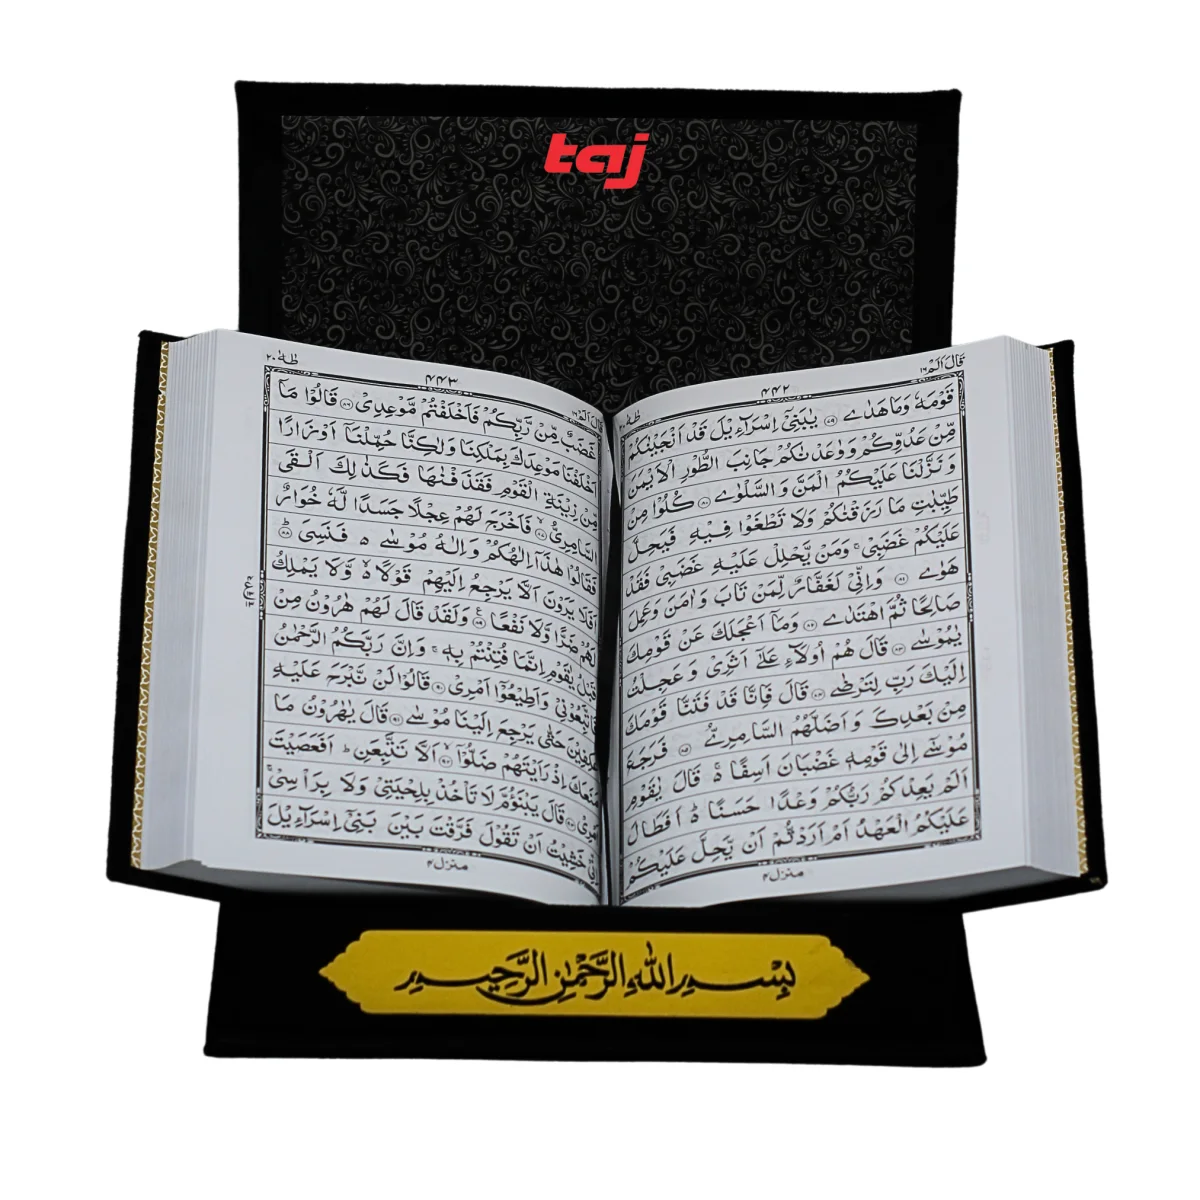 taj
قَالَ اَلَمْ ١٦
۴۴۲
قَوْمَهٗ وَمَا هَدٰى ۝۷۹ يٰبَنِىْٓ اِسْرَآءِيْلَ قَدْ اَنْجَيْنٰكُمْ
مِّنْ عَدُوِّكُمْ وَ وٰعَدْنٰكُمْ جَانِبَ الطُّوْرِ الْاَيْمَنَ
وَ نَزَّلْنَا عَلَيْكُمُ الْمَنَّ وَ السَّلْوٰى ۝۸۰ كُلُوْا مِنْ
طَيِّبٰتِ مَا رَزَقْنٰكُمْ وَلَا تَطْغَوْا فِيْهِ فَيَحِلَّ
عَلَيْكُمْ غَضَبِىْ ۚ وَمَنْ يَّحْلِلْ عَلَيْهِ غَضَبِىْ فَقَدْ
هَوٰى ۝۸۱ وَاِنِّىْ لَغَفَّارٌ لِّمَنْ تَابَ وَ اٰمَنَ وَعَمِلَ
صَالِحًا ثُمَّ اهْتَدٰى ۝۸۲ وَمَآ اَعْجَلَكَ عَنْ قَوْمِكَ
يٰمُوْسٰى ۝۸۳ قَالَ هُمْ اُولَآءِ عَلٰٓى اَثَرِىْ وَ عَجِلْتُ
اِلَيْكَ رَبِّ لِتَرْضٰى ۝۸۴ قَالَ فَاِنَّا قَدْ فَتَنَّا قَوْمَكَ
مِنْۢ بَعْدِكَ وَ اَضَلَّهُمُ السَّامِرِىُّ ۝۸۵ فَرَجَعَ
مُوْسٰٓى اِلٰى قَوْمِهٖ غَضْبَانَ اَسِفًا ۚ قَالَ يٰقَوْمِ
اَلَمْ يَعِدْكُمْ رَبُّكُمْ وَعْدًا حَسَنًا ۚ اَفَطَالَ
عَلَيْكُمُ الْعَهْدُ اَمْ اَرَدْتُّمْ اَنْ يَّحِلَّ عَلَيْكُمْ
منزل ۴
قَالَ اَلَمْ ١٦
۴۴۳
طٰهٰ ٢٠
غَضَبٌ مِّنْ رَّبِّكُمْ فَاَخْلَفْتُمْ مَّوْعِدِىْ ۝۸۶ قَالُوْا مَآ
اَخْلَفْنَا مَوْعِدَكَ بِمَلْكِنَا وَلٰكِنَّا حُمِّلْنَآ اَوْزَارًا
مِّنْ زِيْنَةِ الْقَوْمِ فَقَذَفْنٰهَا فَكَذٰلِكَ اَلْقَى
السَّامِرِىُّ ۝۸۷ فَاَخْرَجَ لَهُمْ عِجْلًا جَسَدًا لَّهٗ خُوَارٌ
فَقَالُوْا هٰذَآ اِلٰهُكُمْ وَاِلٰهُ مُوْسٰى ۵ فَنَسِىَ ۝۸۸
اَفَلَا يَرَوْنَ اَلَّا يَرْجِعُ اِلَيْهِمْ قَوْلًا ۵ وَّلَا يَمْلِكُ
لَهُمْ ضَرًّا وَّلَا نَفْعًا ۝۸۹ وَلَقَدْ قَالَ لَهُمْ هٰرُوْنُ مِنْ
قَبْلُ يٰقَوْمِ اِنَّمَا فُتِنْتُمْ بِهٖ ۚ وَاِنَّ رَبَّكُمُ الرَّحْمٰنُ
فَاتَّبِعُوْنِىْ وَاَطِيْعُوْٓا اَمْرِىْ ۝۹۰ قَالُوْا لَنْ نَّبْرَحَ عَلَيْهِ
عٰكِفِيْنَ حَتّٰى يَرْجِعَ اِلَيْنَا مُوْسٰى ۝۹۱ قَالَ يٰهٰرُوْنُ مَا
مَنَعَكَ اِذْ رَاَيْتَهُمْ ضَلُّوْٓا ۝۹۲ اَلَّا تَتَّبِعَنِ ؕ اَفَعَصَيْتَ
اَمْرِىْ ۝۹۳ قَالَ يَبْنَؤُمَّ لَا تَاْخُذْ بِلِحْيَتِىْ وَلَا بِرَاْسِىْ ۚ
اِنِّىْ خَشِيْتُ اَنْ تَقُوْلَ فَرَّقْتَ بَيْنَ بَنِىْٓ اِسْرَآءِيْلَ
منزل ۴
بِسْمِ اللّٰهِ الرَّحْمٰنِ الرَّحِيْمِ